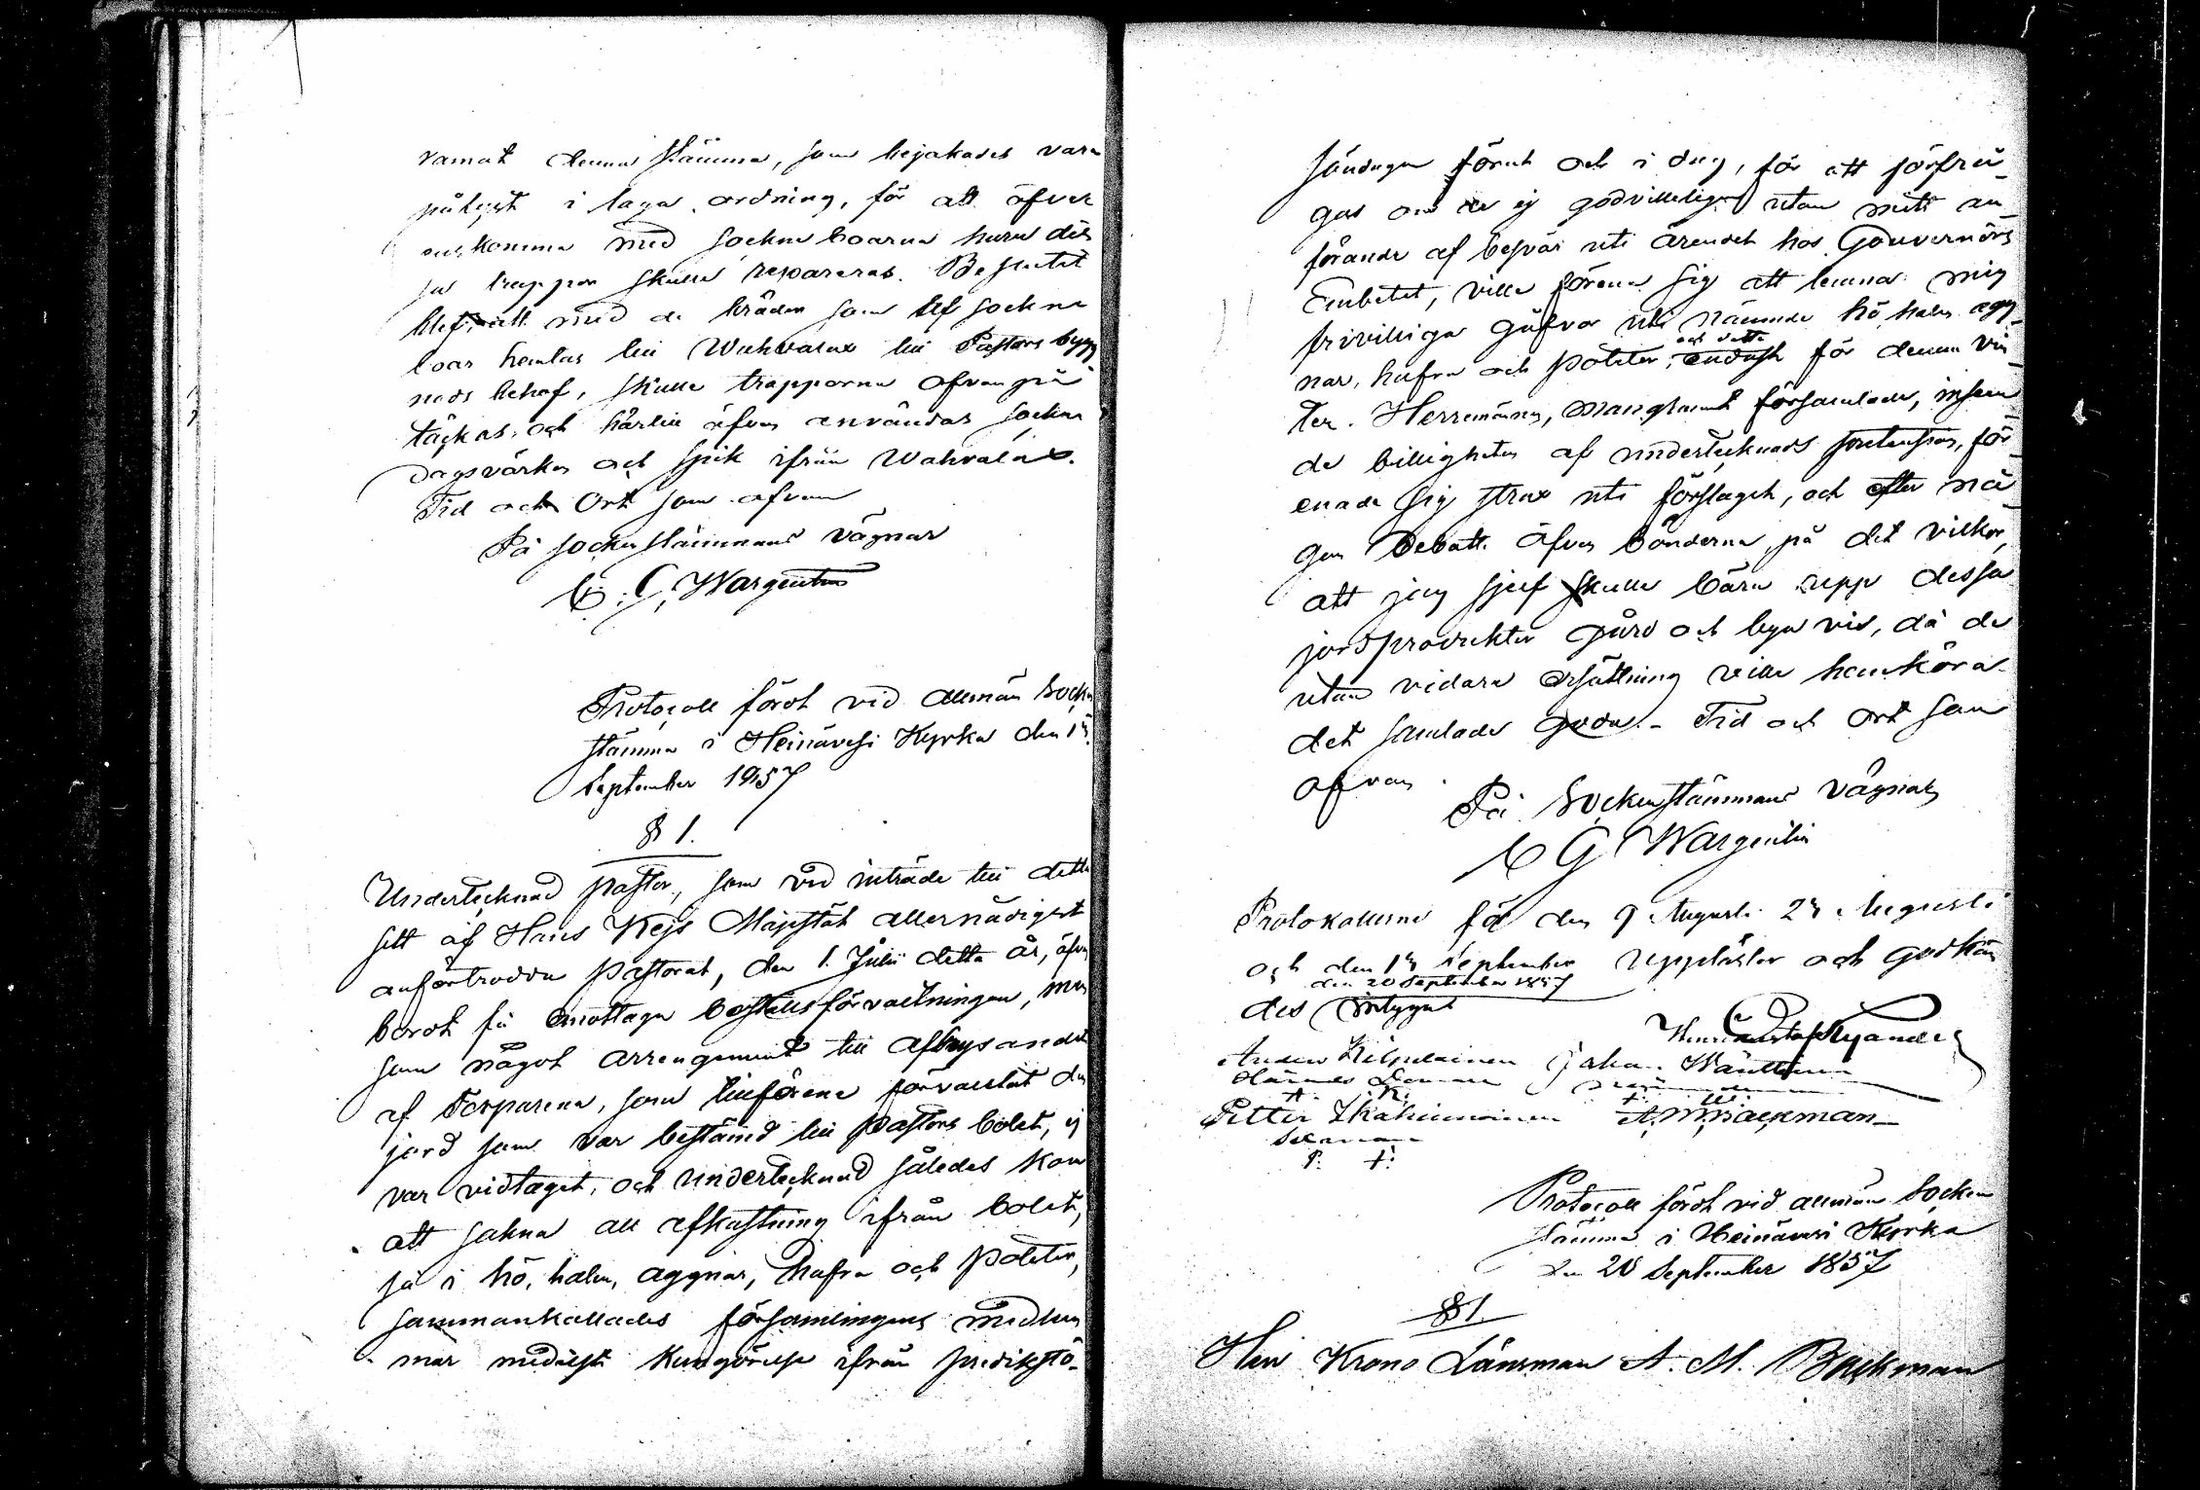 ramat denna stämma, som bejakades vara
pålyst i laga ordning, för att öfver
enskomma med sockneboarna huru des
sa trappor skulle repareras. Beslutet
blef, att med de bräder som af sockne
boar hemtas till Wahvalax till Pastors bygg
nads behof, skulle trapporna ofvanpå
täckas, och härtill äfven användas sockne
dagsvärken och spik ifrån Wahvalax.
Tid och Ort som ofvan
På sockenstämmans vägnar
C. G. Wargentin
Protocoll fördt vid allmän Socken
stämma i Heinävesi Kyrka den 13
September 1857
§ 1.
Undertecknad pastor, som vid inträde till detta
sitt af Hans Kejs Majestät allernådigst
anförtrodda pastorat, den 1. Julii detta år, äfven
bordt få emottaga boställsförvaltningen, men
som något arrengement till afhysandet
af Torparena, som tillförene förvaltat den
jord som var bestämd till pastors bolet, ej
var vidtaget, och undertecknad således kom
att sakna all afkastning ifrån bolet,
så i hö, halm, aggnar, hafra och potäter,
sammankallades församlingens medlem
mar medelst kungörelse ifrån prediksto-
söndagen förut och i dag, för att förfrå-
gas om de ej godvilligen utan mitt an-
förande af besvär uti ärendet hos Gouvernörs
Embetet, ville förena sig att lemna mig
frivilliga gåfvor uti nämnde hö, halm agg-
nar, hafra och potäter, och detta endast för denna vin-
ter. Herremännen, mangrant församlade, insen
de billigheten af undertecknads pretension, för-
enade sig strax uti förslaget, och efter nå-
gon Debatt äfven bönderna, på det vilkor,
att jag sjelf skulle bära upp dessa
jordprodukter gård och byavis, då de
utan vidare ersättning ville hemköra
det samlade goda. - Tid och ort som
ofvan.
På Sockenstämmans vägnar
C G Wargentin
Protokollerne för den 9 Augusti 23 Augusti
och den 13 September uppläste och godkän
den 20 September 1857
des intygat
Henric Gustaf Kyander
Anders Kilpeläinen Johan Vänttinen
Petter Ikäheimoinen A. M. Backman
P. T.
Protocoll fördt vid allmän Socken
stämma i Heinävesi Kyrka
den 20 September 1857
§ 1.
Herr Krono Länsman A. M. Backman